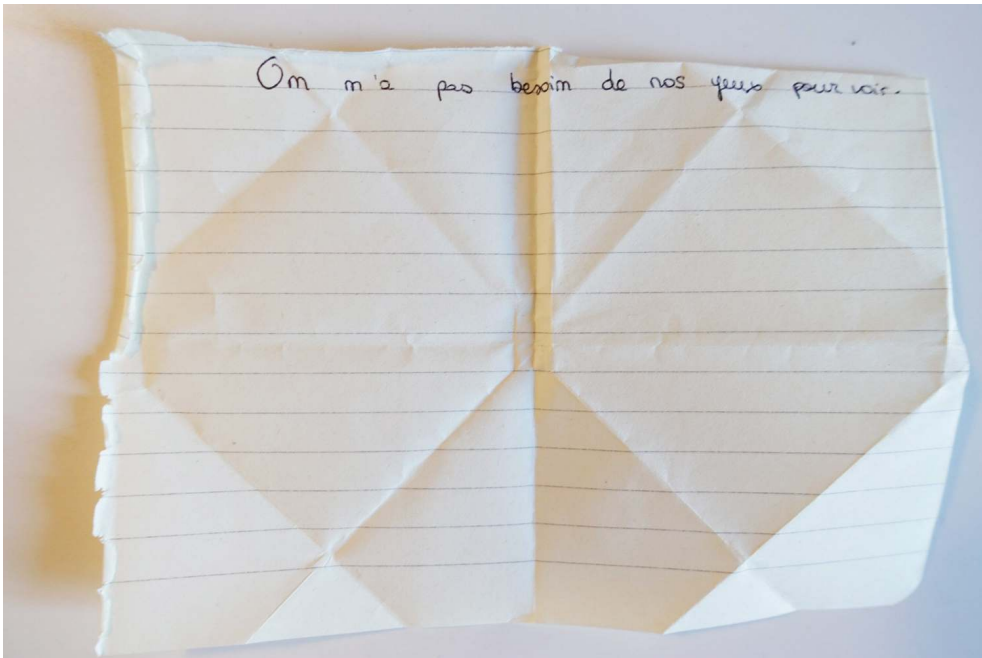 On n'a pas besoin de nos yeux pour voir.